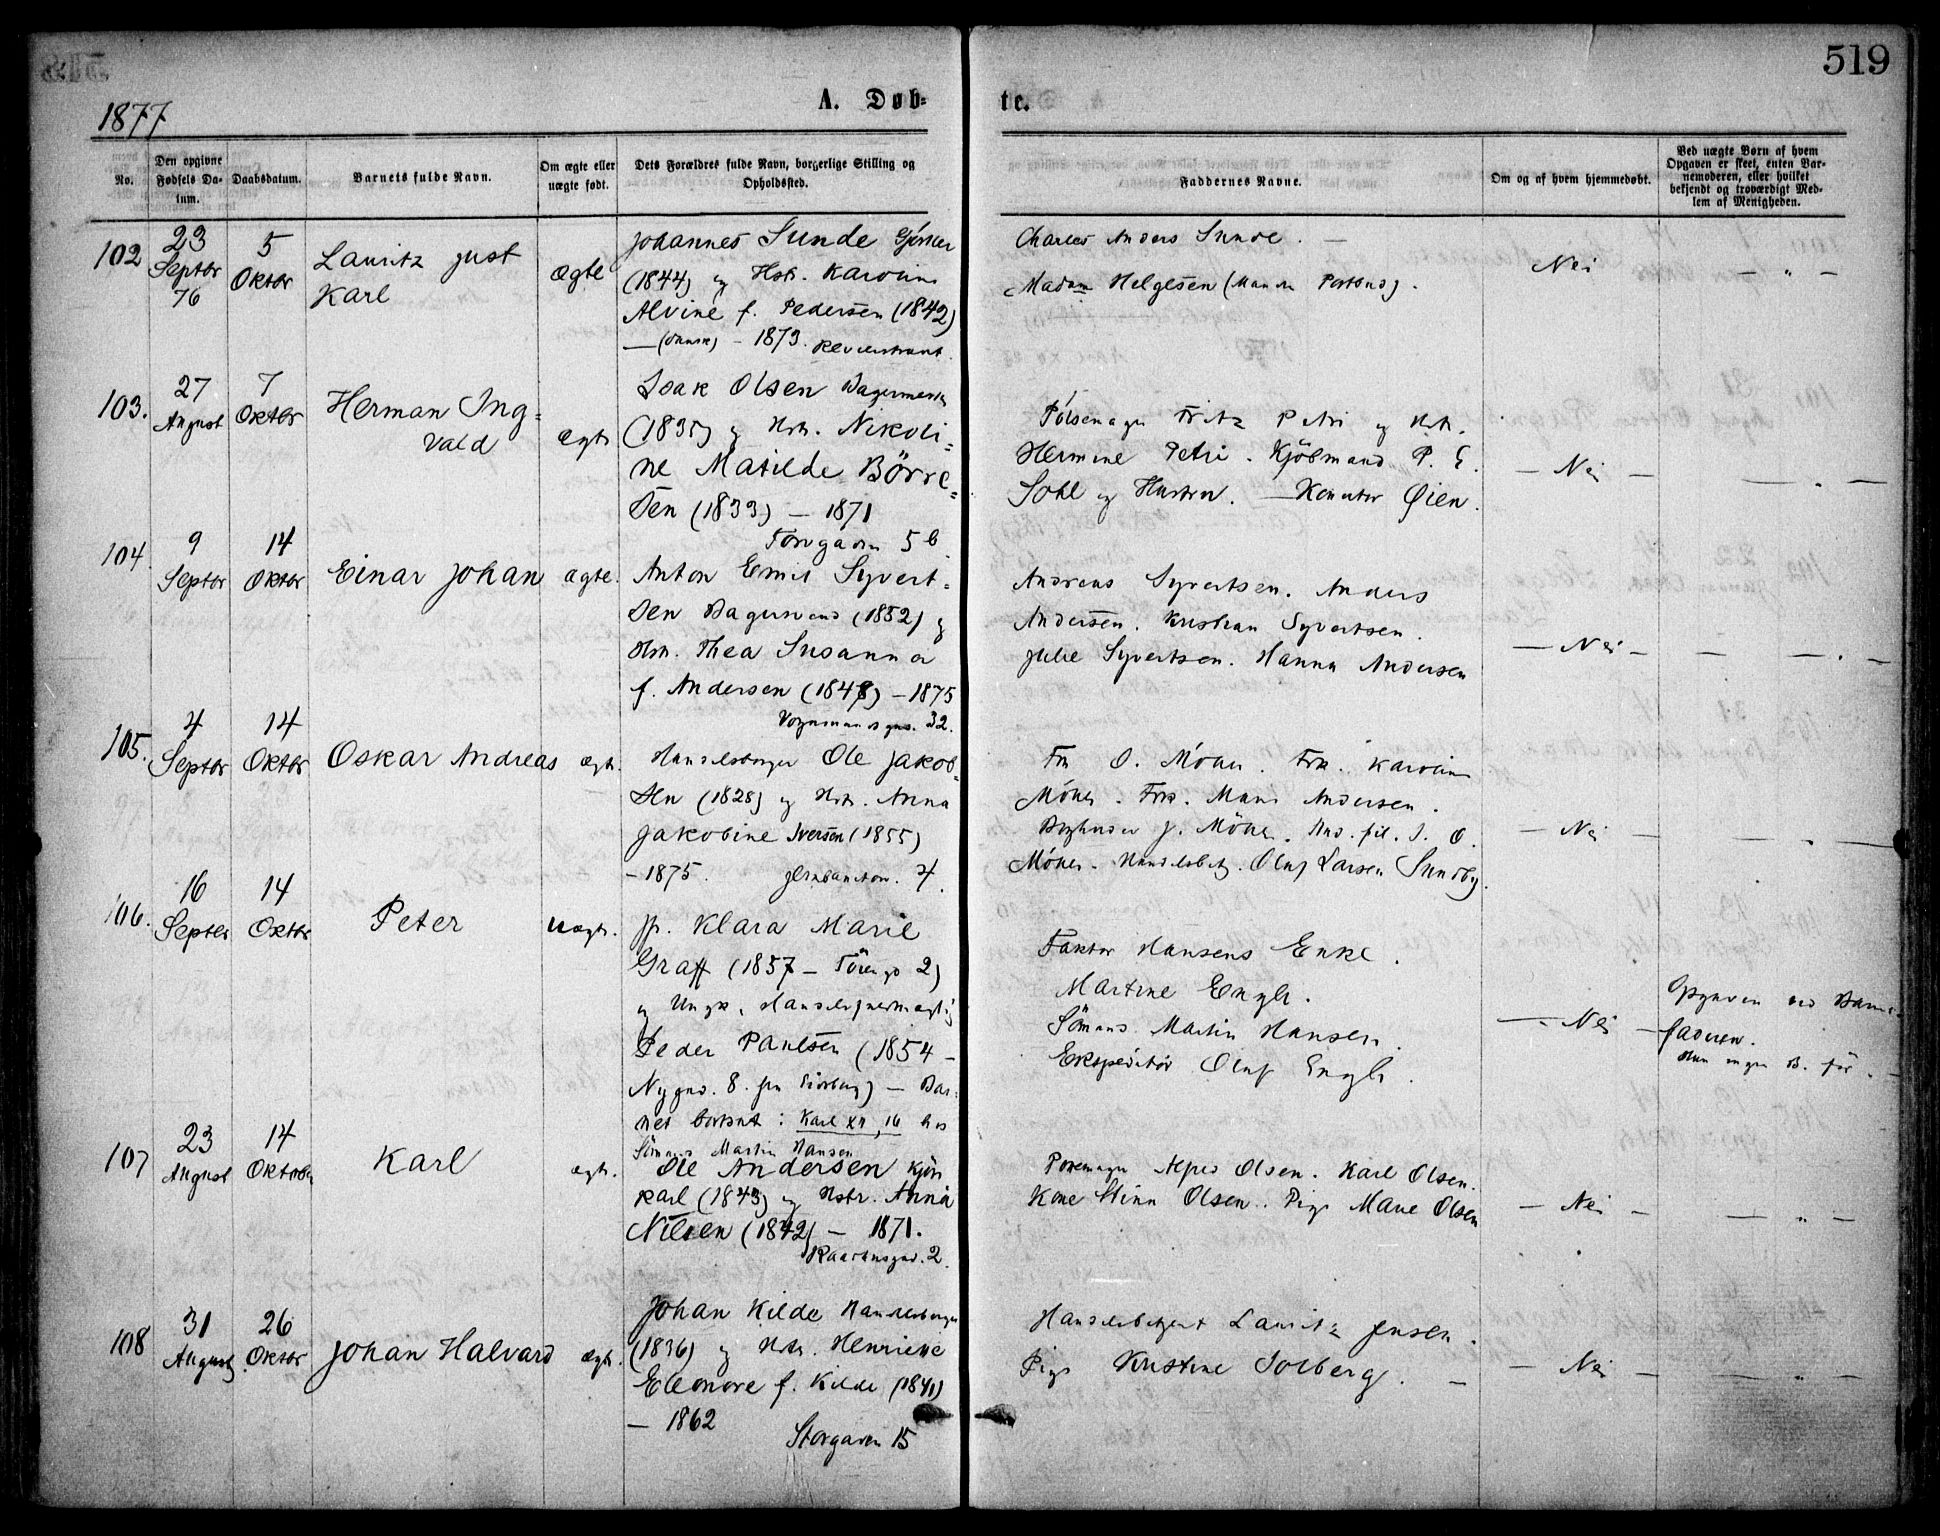 519
1877
A. Døb-
te.
No.
Den opgivne
Fødsels Da-
tum.
Daabsdatum.
Barnets fulde Navn.
Om ægte eller
uægte født.
Dets Forældres fulde Navn, borgerlige Stilling og
Opholdssted.
Faddernes Navne.
Om og af hvem hjemmedøbt.
Ved uægte Børn af hvem
Opgaven er skeet, enten Bar-
nemoderen, eller hvilket
bekjendt og troværdigt Med-
lem af Menigheden.
102
23
Septbr
76
5
Oktbr
Lauritz Just
Karl
ægte
Johannes Sunde
(1844) og Hstr. Karoline
Alvine f. Pedersen (1842)
(dansk) - 1873.
Charles Anders Sunde. —
Madam Helgesen
Nei
— „ —
103.
27
August
7
Oktbr
Herman Ing-
vald
ægte
Isak Olsen
(1835) og Hstr. Nikoli-
ne Matilde Börre-
sen (1833) — 1871
Torvgaden 5 b
Fritz Petri og Hstr.
Hermine Petri. Kjöbmand P. E.
Sohl og Hustru. — Øien.
— Nei —
104.
9
Septbr
14
Oktbr
Einar Johan
ægte.
Anton Emil Syvert-
sen (1852) og
Hstr. Thea Susanna
f. Andersen (1848) — 1875
Vognmandsgad. 32.
Andreas Syvertsen. Anders
Andersen. Kristian Syvertsen.
Julie Syvertsen. Hanna Andersen
— Nei —
105.
4
Septbr
14
Oktbr
Oskar Andreas
ægt.
Handelsborger Ole Jakob-
sen (1828) og Hstr. Anna
Jakobine Iversen (1855)
- 1875. 4.
O. Möller. Frk. Karoline
Möller. Andersen.
J. Möller. Stud. fil. O.
Möller. Oluf Larsen Sundby.
— Nei —
106.
16
Septbr
14
Oktbr
Peter
uægt.
Pp. Klara Marie
Graff (1857 — 2)
og Ungk. Handelsfuldmægtig
Peder Paulsen (1854 —
Nygad. 8. ) — Bar-
net bortsat: Karl XII, 16 hos
Sömand Martin Hansen
Faktor Hansens Enke.
Martine Engh.
Sömand Martin Hansen.
Ekspeditör Oluf Engh.
— Nei —
Opgaven ved Barne-
faderen.
Hun ingen B. för.
107
23
August
14
Oktober
Karl
ægt.
Ole Andersen Kjöre-
karl (1843) og Hstr. Anna
Nilsen (1842) — 1871.
Raadhusgad. 2.
Alfred Olsen. Karl Olsen.
Kone Stina Olsen. Pige Marie Olsen
— Nei —
— „ —
108
31
August
26
Oktbr
Johan Halvard
ægt.
Johan Kilde Handelsborger
(1836) og Hstr. Henriette
Eleonore f. Kilde (1841)
— 1862
Storgaden 15
Handelsbetjent Lauritz Jensen.
Pige Kristine Solberg. —
— Nei —
— „ —